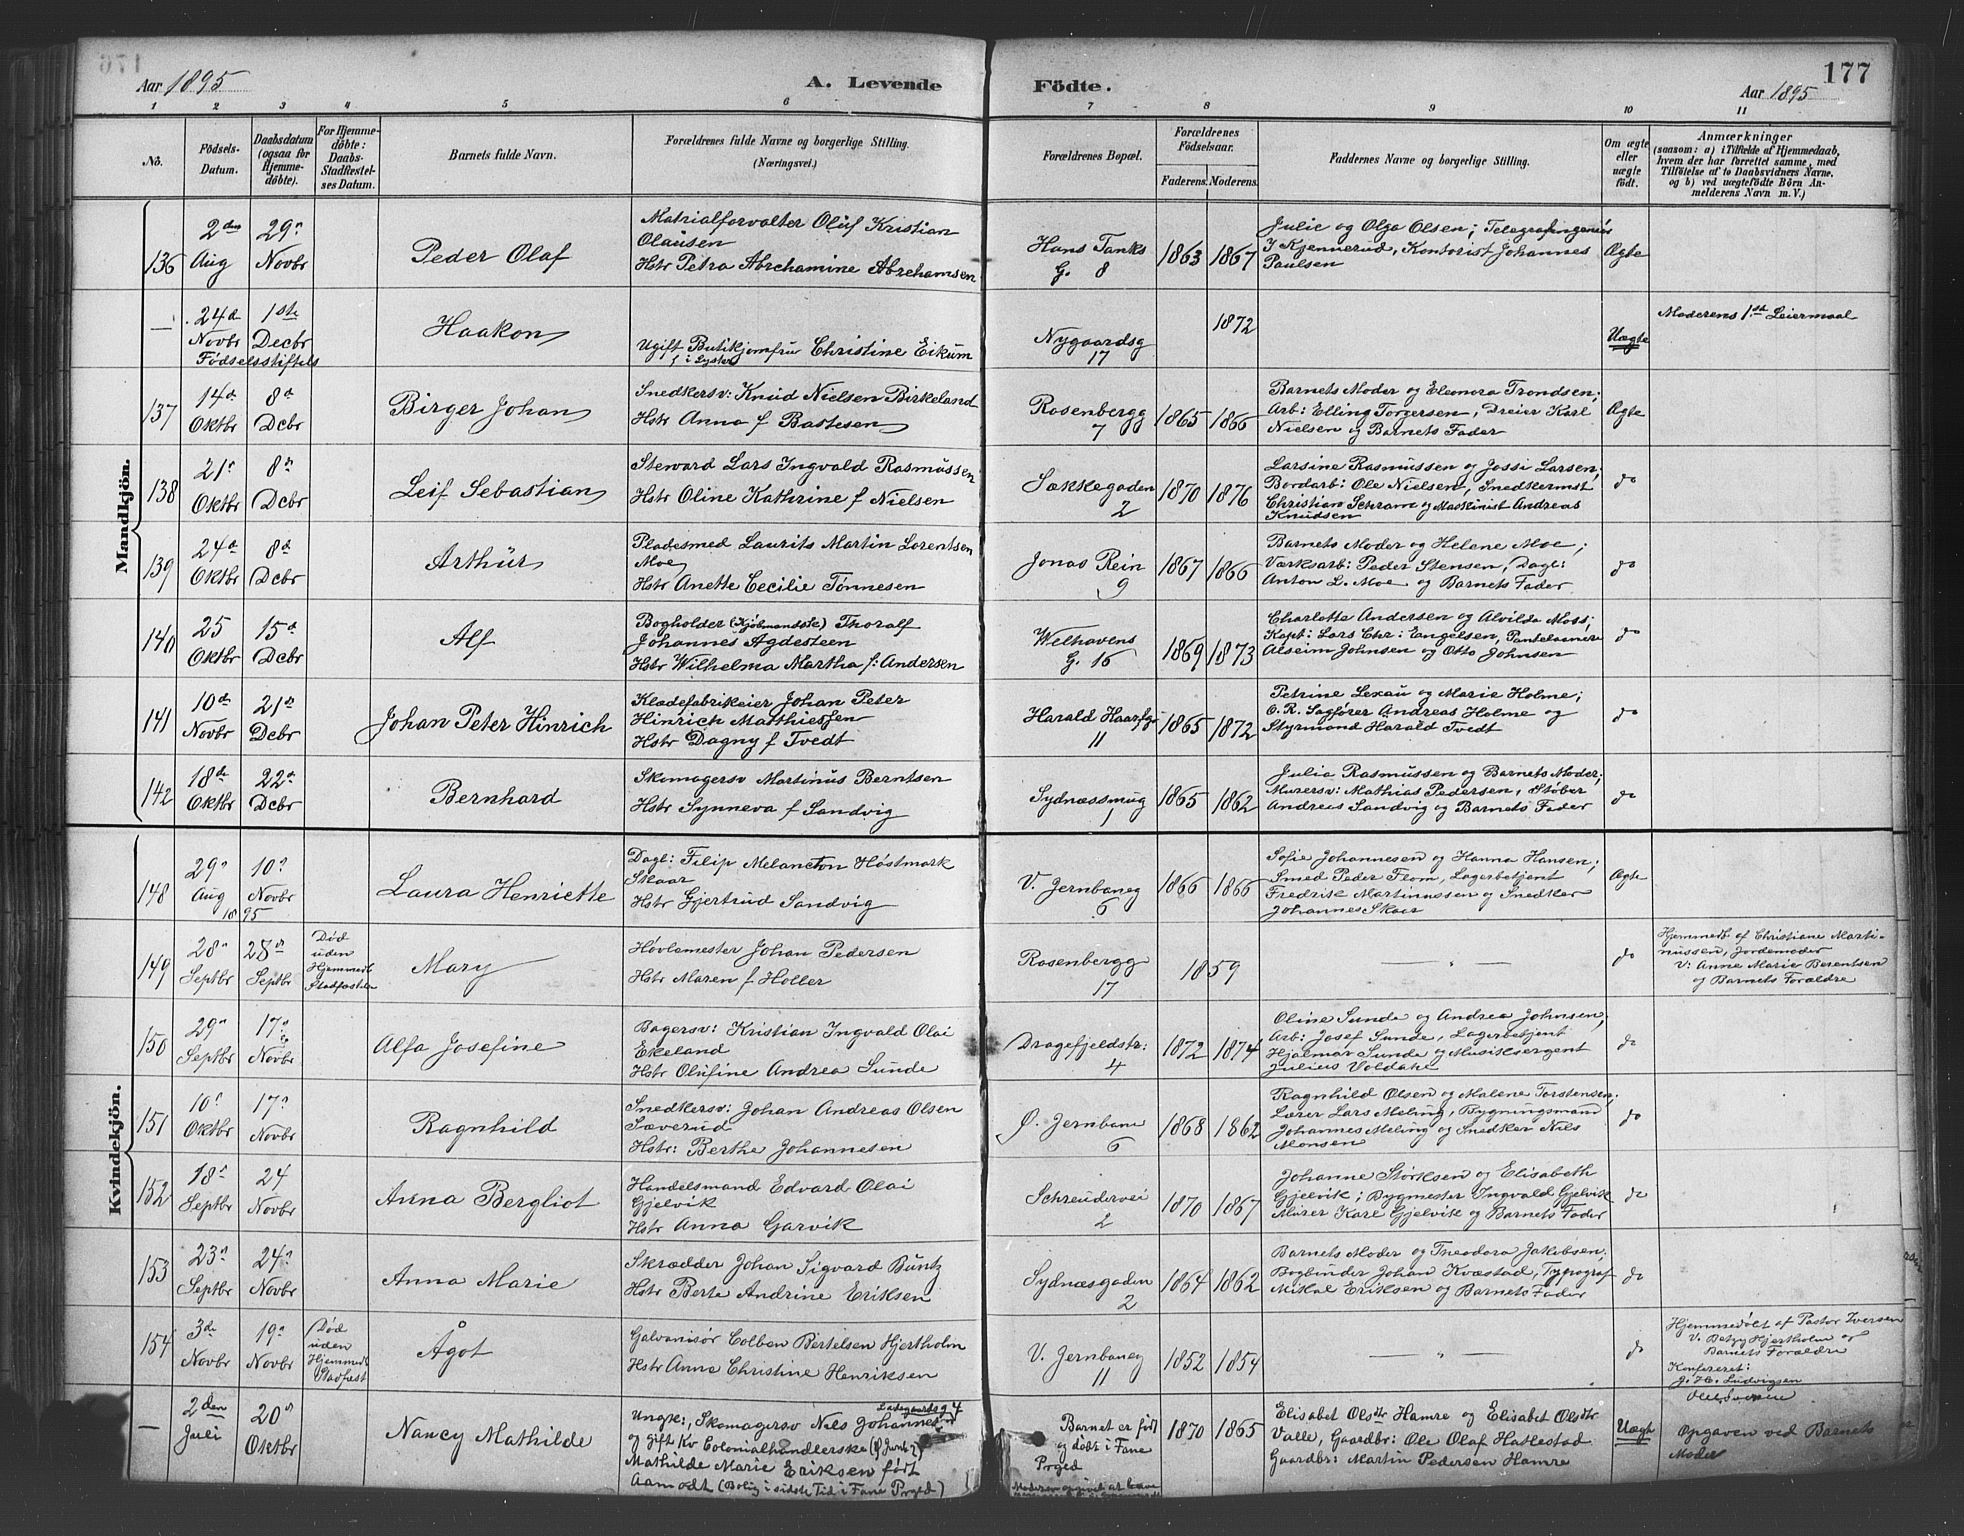 Aar 1895 A. Levende
Födte. Aar 1895 177
1 2 3 4 5 6
7 8 9 10 11
No. Födsels-Datum. Daabsdatum (ogsaa for Hjemmedöbte). For Hjemmedöbte: Daabs-Stadfæstelses Datum. Barnets fulde Navn. Forældrenes fulde Navne og borgerlige Stilling. (Næringsvei.)
Forældrenes Bopæl. Forældrenes Födselsaar. Faderens. Moderens. Faddernes Navne og borgerlige Stilling. Om ægte eller uægte født.
Anmærkninger
(saasom: a) i Tilfælde af Hjemmedaab,
hvem der har forrettet samme, med
Tilföielse af to Daabsvidners Navne.
og b) ved uægtefödte Börn An-
melderens Navn m. V.)
Mandkjön.
136 2den Aug 29n Novbr Peder Olaf
Matrialforvalter Oluf Kristian
Olausen
Hstr Petra Abrahamine Abrehamsen
Hans Tanks
G. 8
1863 1867
Julie og Olga Olsen; Telegrafingeniør
J Kjennerud, Kontorist Johannes
Paulsen
Ægte
— 24d Novbr 1ste Decbr Haakon
Fødselsstiftels
Ugift Butikjomfru Christine Eikum
i Lyster
Nygaardsg
17
1872
Uægte
Moderens 1ste Leiermaal
137 14d Oktbr 8d Dcbr Birger Johan
Snedkersv: Knud Nielsen Birkeland
Hstr Anna f Bastesen
Rosenbergg
7
1865 1866
Barnets Moder og Eleonora Trondsen;
Arb: Elling Torgersen, Dreier Karl
Nielsen og Barnets Fader
Ægte
138 21n Oktbr 8d Dcbr Leif Sebastian
Steward Lars Ingvald Rasmussen
Hstr Oline Kathrine f Nielsen
Sækkegaden
2
1870 1876
Larsine Rasmussen og Jossi Larsen;
Bordarb: Ole Nielsen, Snedkermst
Christian Schram og Maskinist Andreas
Knudsen
do
139 24d Oktbr 8d Dcbr Arthur
Pladesmed Laurits Martin Lorentsen
Moe
Hstr Anette Cecilie Tønnesen
Jonas Rein
9
1867 1866
Barnets Moder og Helene Moe;
Værksarb: Peder Stensen, Dagl:
Anton L. Moe og Barnets Fader
do
140 25 Oktbr 15d Dcbr Alf
Bogholder (Kjøbmandsste) Thoralf
Johannes Agdesteen
Hstr Wilhelma Martha f: Andersen
Welhavens
G. 16
1869 1873
Charlotte Andersen og Alvilda Moss;
Kapt: Lars Chr: Engelsen, Pantelaanere
Alseim Johnsen og Otto Johnsen
do
141 10d Novbr 21d Dcbr Johan Peter Hinrich
Klædefabrikeier Johan Peter
Hinrich Matthiessen
Hstr Dagny f Tvedt
Harald Haarfgr
11
1865 1872
Petrine Lexau og Marie Holme;
O.R. Sagfører Andreas Holme og
Styrmand Harald Tvedt
do
142 18de Oktbr 22d Dcbr Bernhard
Skomagersv Martinus Berntsen
Hstr Synneva f Sandvig
Sydnæssmug
1
1865 1862
Julia Rasmussen og Barnets Moder;
Murersv: Mathias Pedersen, Støber
Andreas Sandvig og Barnets Fader
do
Kvindekjön.
148 29n Aug 1895 10n Novbr Laura Henriette
Dagl: Filip Melancton Høstmark
Skaar
Hstr Gjertrud Sandvig
V. Jernbaneg
6
1866 1866
Sofie Johannesen og Hanna Hansen;
Smed Peder Flom, Lagerbetjent
Fredrik Martinussen og Snedker
Johannes Skaar
Ægte
149 28n Septbr 28n Septbr Død uden Hjemmedb Stadfæstelse Mary
Høvlemester Johan Pedersen
Hstr Maren f Holler
Rosenbergg
17
1859
— " —
do
Hjemmedb af Christiane Marti-
nussen, Jordemoder
V: Anne Marie Berentsen
og Barnets Forældre
150 29n Septbr 17n Novbr Alfa Josefine
Bagersv: Kristian Ingvald Olai
Ekeland
Hstr Olufine Andrea Sunde
Dragefjeldstr:
4
1872 1874
Oline Sunde og Andrea Johnsen,
Arb: Josef Sunde, Lagerbetjent
Hjalmar Sunde og Musiksergent
Julius Voldahl
do
151 10n Oktbr 17n Novbr Ragnhild
Snedkersv: Johan Andreas Olsen
Sæverud
Hstr: Berthe Johannesen
Ø. Jernbane
6
1868 1862
Ragnhild Olsen og Malene Torstensen;
Lærer Lars Meling, Bygningsmand
Johannes Meling og Snedker Nils
Monsen
do
152 18n Septbr 24 Novbr Anna Bergliot
Handelsmand Edvard Olai
Gjelvik
Hstr Anna Garvik
Schreudervei
2
1870 1867
Johanne Størksen og Elisabeth
Gjelvik; Bygmester Ingvald Gjelvik
Murer Karl Gjelvik og Barnets Fader
do
153 23n Septbr 24n Novbr Anna Marie
Skrædder Johan Sigvard Buntz
Hstr Berte Andrine Eriksen
Sydnæsgaden
2
1864 1862
Barnets Moder og Theodora Jakobsen;
Bogbinder Johan Kvæstad, Typograf
Mikal Eriksen og Barnets Fader
do
154 3de Novbr 19n Novbr Død uden Hjemmedb Stadfæst Ågot
Galvanisør Colban Bertelsen Hjertholm
Hstr Anna Christine Henriksen
V. Jernbaneg
11
1852 1854
— " —
do
Hjemmedøbt af Pastor Iversen
V. Betzy Hjertholm og
Barnets Forældre
Konfereret:
J. H. Ludvigsen
— 2den Juli 20n Oktbr Nancy Mathilde
Ladegaardsg 4
Ungk:, Skomagersv Nils Johannesen
og gift Kv Colonialhandlerske
Mathilde Marie Eriksen født
Aamodt (Bolig i sidste Tid i Fane Prgæd)
Barnet er født
og døbt i Fane
Prgæd
1870 1865
Elisabet Olsdtr Hamre og Elisabet Olsdtr
Valle, Gaardbr: Ole Olaf Hatlestad
Gaardbr: Martin Pedersen Hamre
Uægt
Opgaven ved Barnets
Moder